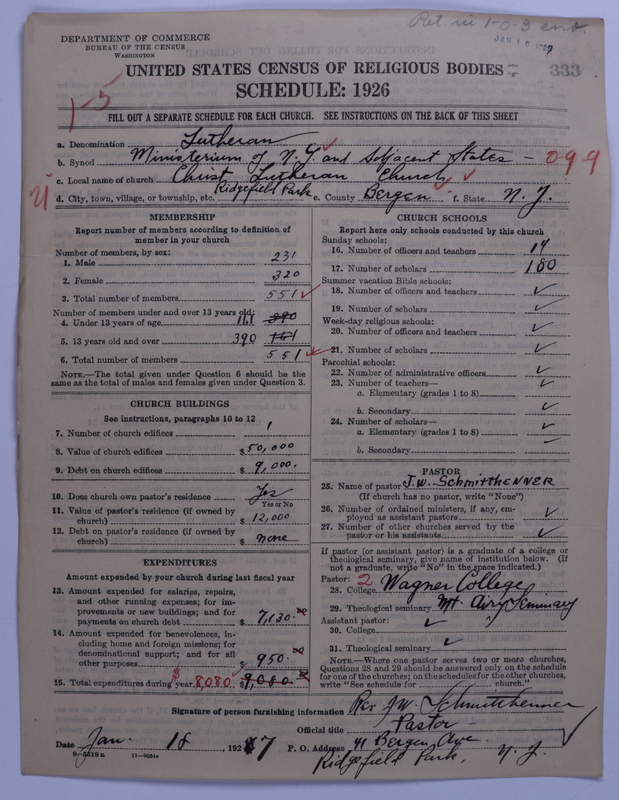 Ret. in 1-0-3 env.
DEPARTMENT OF COMMERCE
BUREAU OF THE CENSUS
WASHINGTON
JAN 19 1927
UNITED STATES CENSUS OF RELIGIOUS BODIES
333
SCHEDULE: 1926
1-5
FILL OUT A SEPARATE SCHEDULE FOR EACH CHURCH. SEE INSTRUCTIONS ON THE BACK OF THIS SHEET
a. Denomination Lutheran
b. Synod Ministerium of N.Y. and Adjacent States - 099
c. Local name of church Christ Lutheran Church
d. City, town, village, or township, etc. Ridgefield Park e. County Bergen f. State N. J.
MEMBERSHIP
Report number of members according to definition of
member in your church
Number of members, by sex:
1. Male 231
2. Female 320
3. Total number of members 551
Number of members under and over 13 years old:
4. Under 13 years of age 161 390
5. 13 years old and over 390 161
6. Total number of members 551
NOTE.—The total given under Question 6 should be the
same as the total of males and females given under Question 3.
CHURCH BUILDINGS
See instructions, paragraphs 10 to 12
7. Number of church edifices 1
8. Value of church edifices $50,000
9. Debt on church edifices $9,000.
10. Does church own pastor's residence Yes
Yes or No
11. Value of pastor's residence (if owned by
church) $12,000
12. Debt on pastor's residence (if owned by
church) $none
EXPENDITURES
Amount expended by your church during last fiscal year
13. Amount expended for salaries, repairs,
and other running expenses; for im-
provements or new buildings; and for
payments on church debt $7,130.
14. Amount expended for benevolences, in-
cluding home and foreign missions; for
denominational support; and for all
other purposes $950.
15. Total expenditures during year $8,080 9,080
CHURCH SCHOOLS
Report here only schools conducted by this church
Sunday schools:
16. Number of officers and teachers 14
17. Number of scholars 180
Summer vacation Bible schools:
18. Number of officers and teachers ✓
19. Number of scholars ✓
Week-day religious schools:
20. Number of officers and teachers ✓
21. Number of scholars ✓
Parochial schools:
22. Number of administrative officers ✓
23. Number of teachers—
a. Elementary (grades 1 to 8) ✓
b. Secondary ✓
24. Number of scholars—
a. Elementary (grades 1 to 8) ✓
b. Secondary
PASTOR
25. Name of pastor J.W. Schmitthenner
(If church has no pastor, write "None")
26. Number of ordained ministers, if any, em-
ployed as assistant pastors ✓
27. Number of other churches served by the
pastor or his assistants ✓
If pastor (or assistant pastor) is a graduate of a college or
theological seminary, give name of institution below. (If
not a graduate, write "No" in the space indicated.)
Pastor: 2
28. College Wagner College
29. Theological seminary Mt. Airy Seminary
Assistant pastor:
30. College ✓
31. Theological seminary ✓
NOTE.—Where one pastor serves two or more churches,
Questions 28 and 29 should be answered only on the schedule
for one of the churches; on the schedules for the other churches,
write "See schedule for church."
Signature of person furnishing information Rev J.W. Schmitthenner
Official title Pastor
Date Jan. 18, 1927 P. O. Address 41 Bergen Ave
Ridgefield Park, N. J.